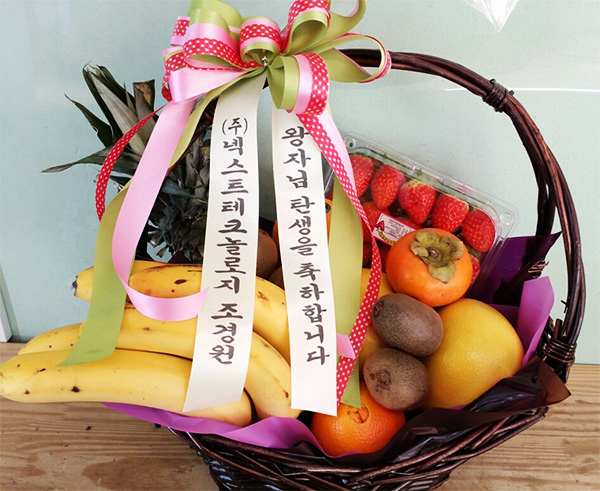 (주)넥스트테크놀로지 조경원
왕자님 탄생을 축하합니다